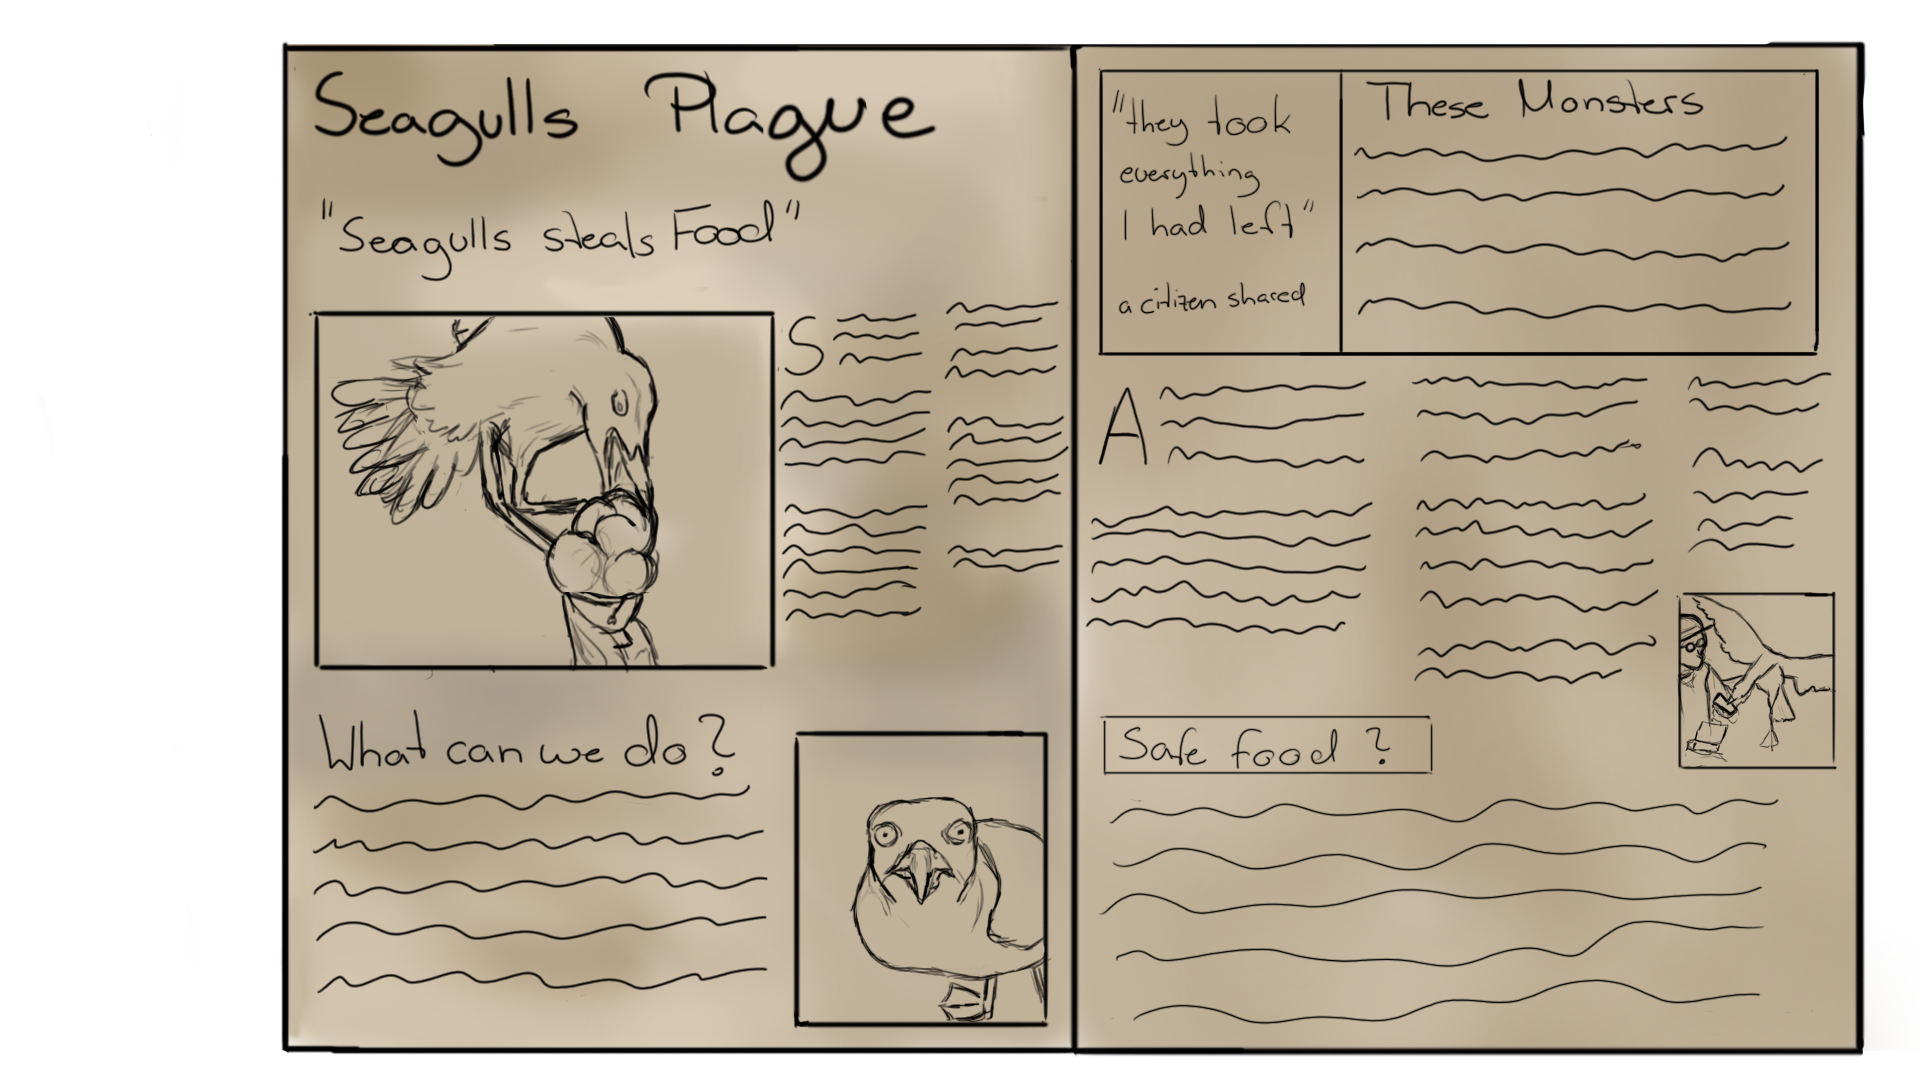 Seagulls Plague
"Seagulls steals Food"
S
What can we do?
"they took
everything
I had left"
a citizen shared
These Monsters
A
Safe food ?